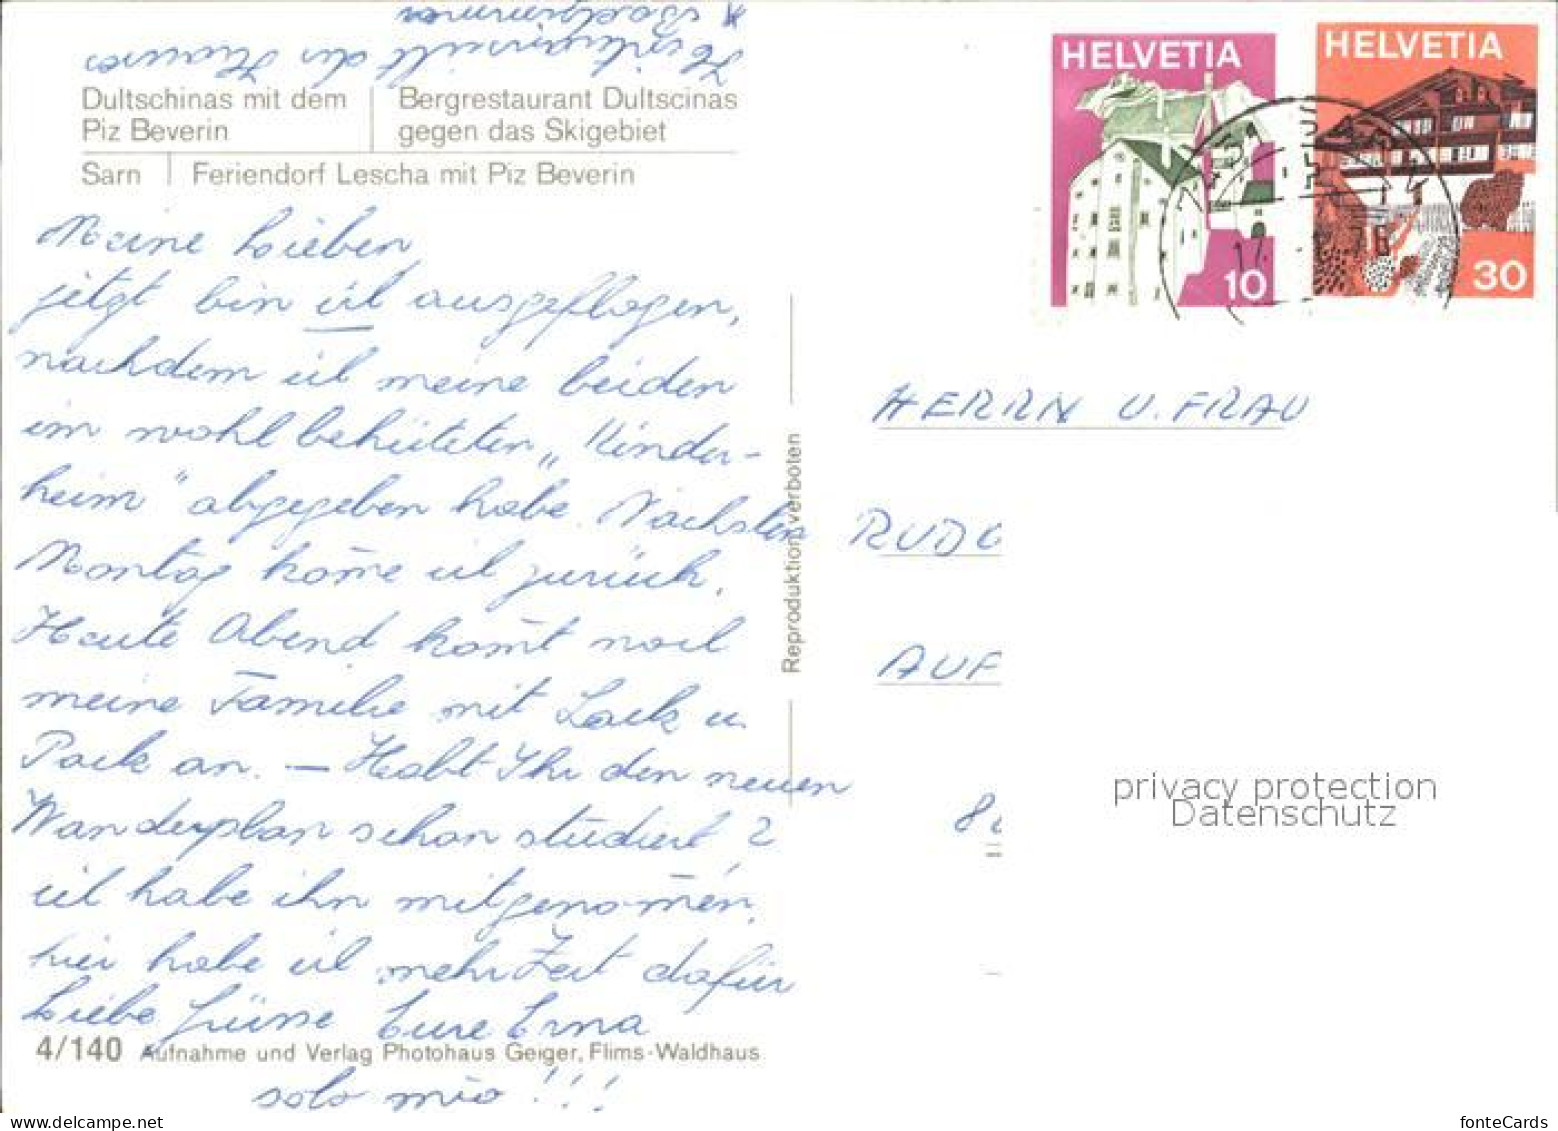 Dultschinas mit dem
Piz Beverin
Bergrestaurant Dultscinas
gegen das Skigebiet
Sarn
Feriendorf Lescha mit Piz Beverin
Meine Lieben
jetzt bin ich ausgeflogen,
nachdem ich meine beiden
im wohlbehüteten „Kinder-
heim" abgegeben habe. Nächsten
Montag kom̄e ich zurück.
Heute Abend kom̄t noch
meine Familie mit Sack u.
Pack an. — Habt Ihr den neuen
Wanderplan schon studiert?
ich habe ihn mitgenom̄en,
hier habe ich mehr Zeit dafür
Liebe Grüsse Eure Erna
solo mio!!!
4/140 Aufnahme und Verlag Photohaus Geiger, Flims-Waldhaus
Reproduktion verboten
HELVETIA
10
HELVETIA
30
HERRN U. FRAU
RUDO
AUF
privacy protection
Datenschutz
fonteCards
delcampe.net